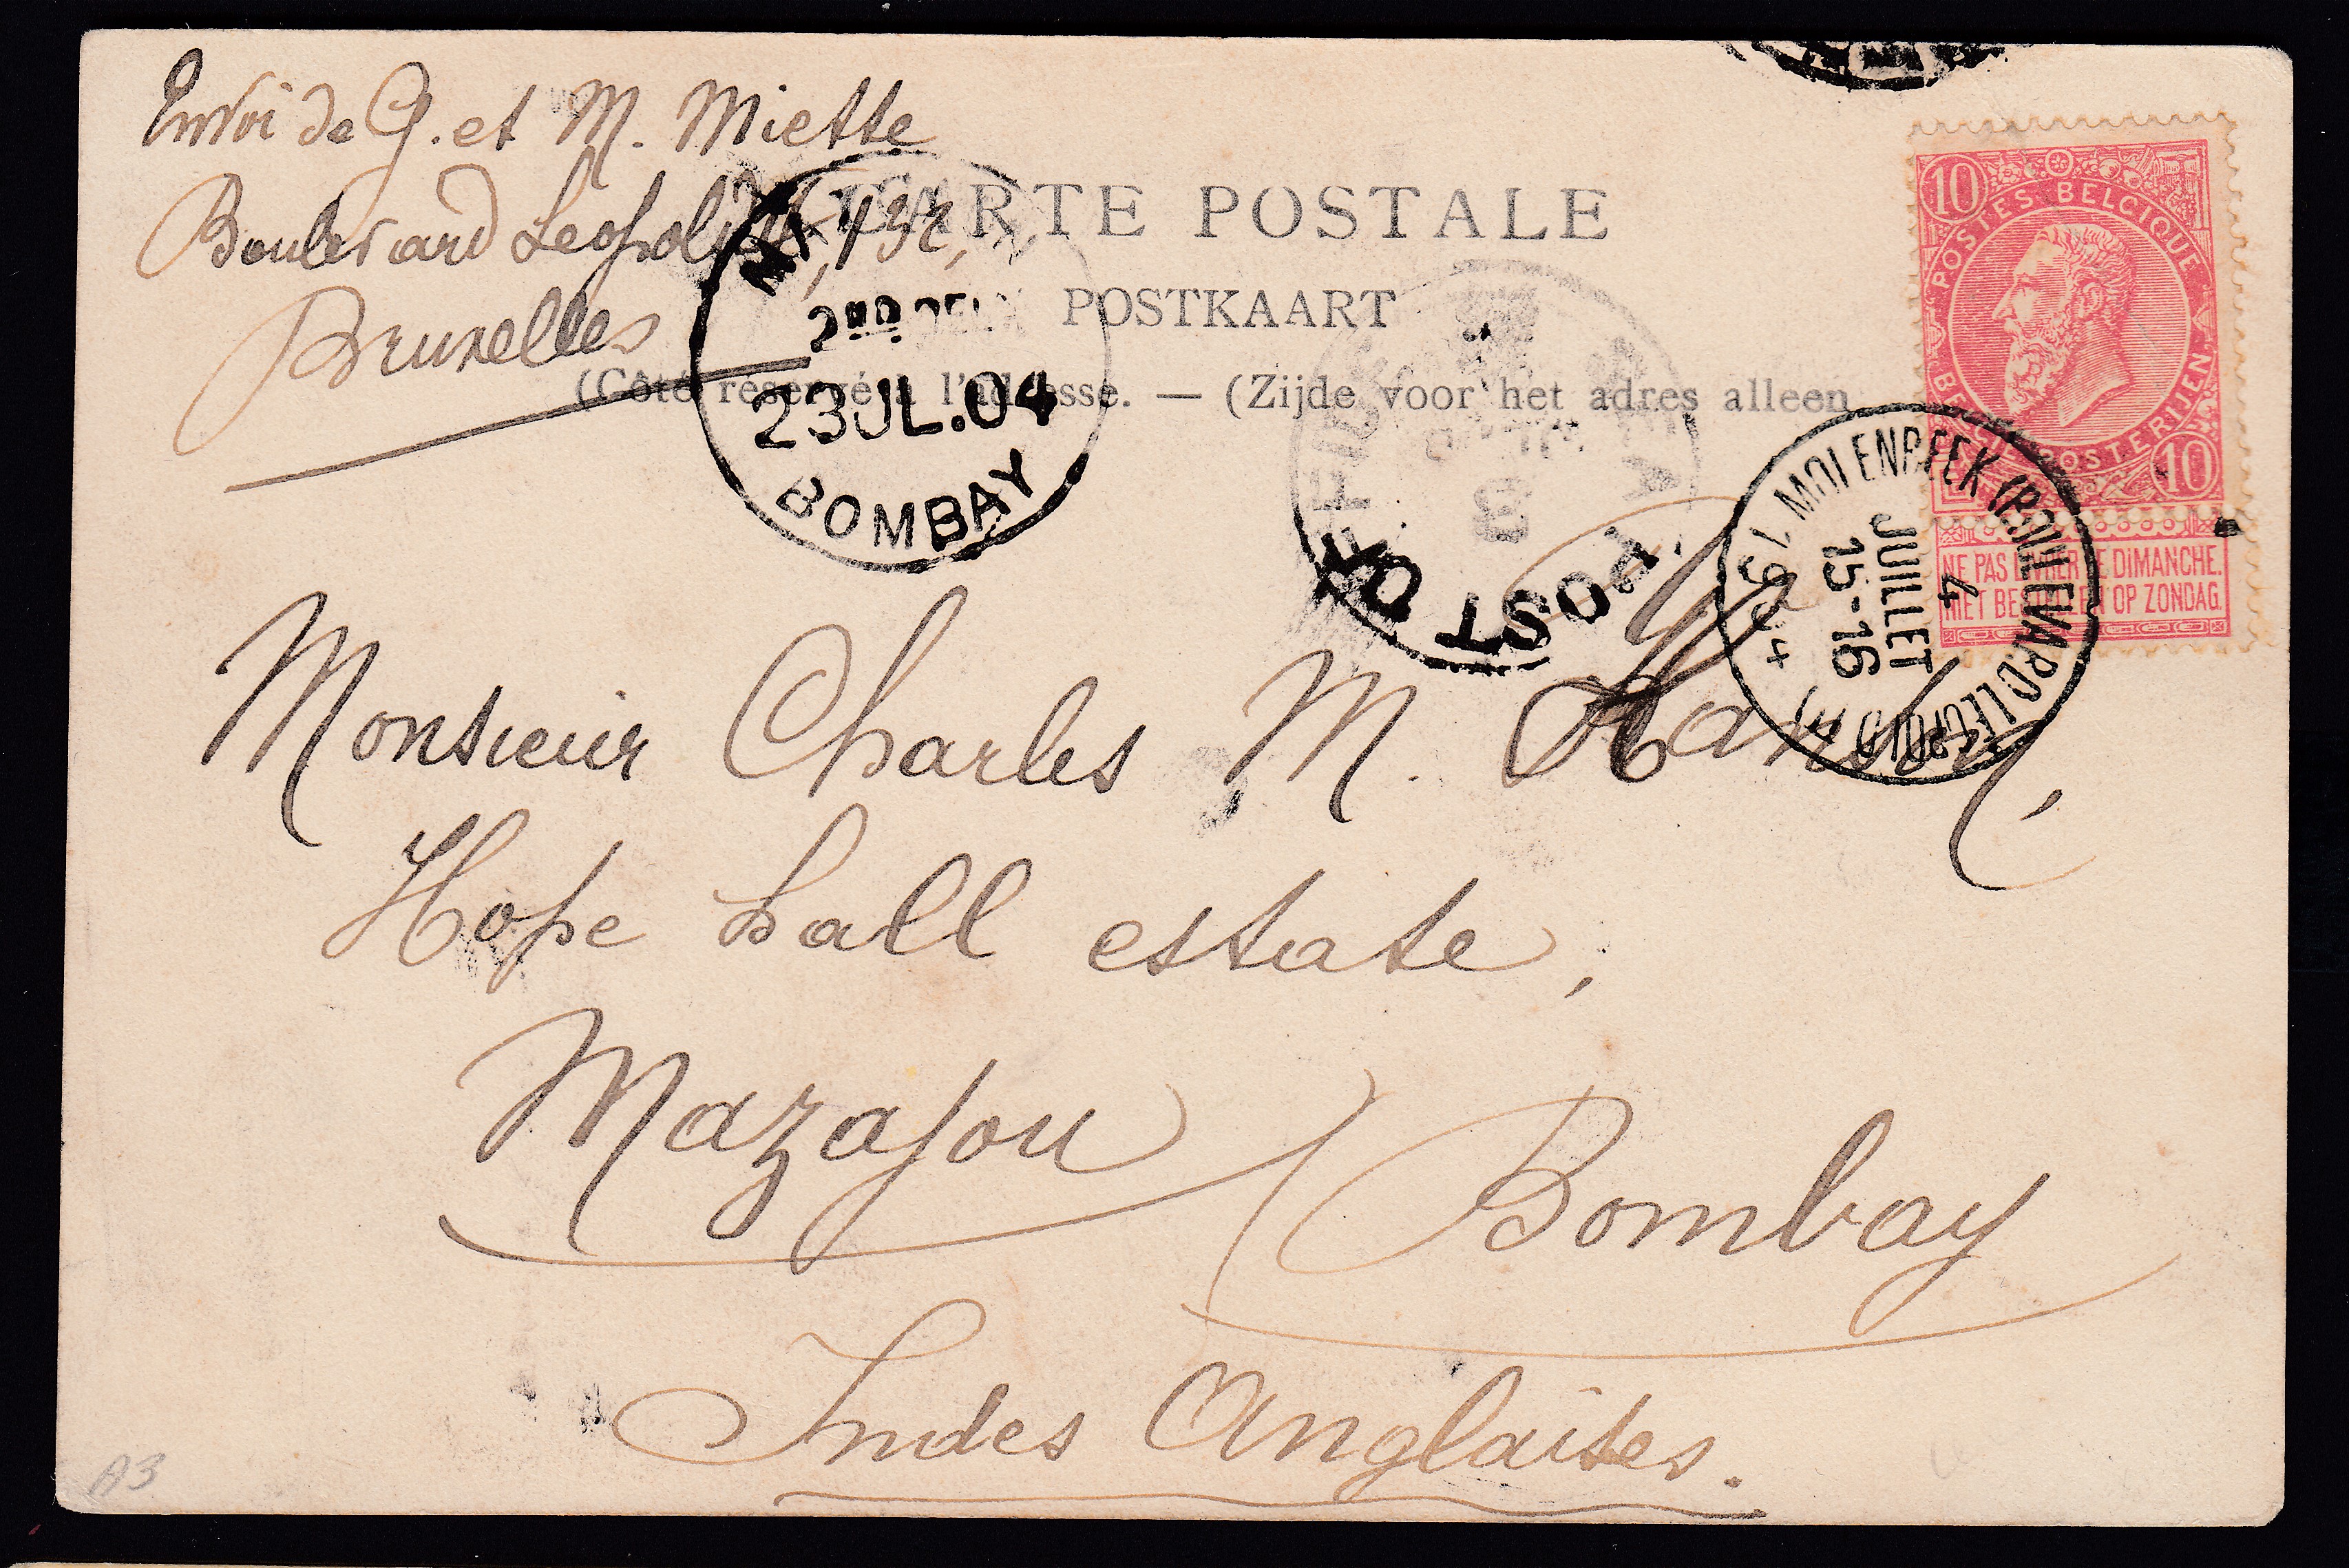 Envoi de G. et M. Miette
Boulevard Leopold II, 132,
Bruxelles
CARTE POSTALE
POSTKAART
(Côté réservé à l'adresse. — (Zijde voor het adres alleen
10
POSTES BELGIQUE
BELGIE POSTERIJEN
10
NE PAS LIVRER LE DIMANCHE.
NIET BESTELLEN OP ZONDAG.
MOLENBEEK (BOULEVARD LEOPOLD II)
4
JUILLET
15-16
1904
2ND DELY
23JL.04
BOMBAY
POST OFFICE
Monsieur Charles M.
Hope hall estate,
Mazagon
Bombay
Indes Anglaises.
A3